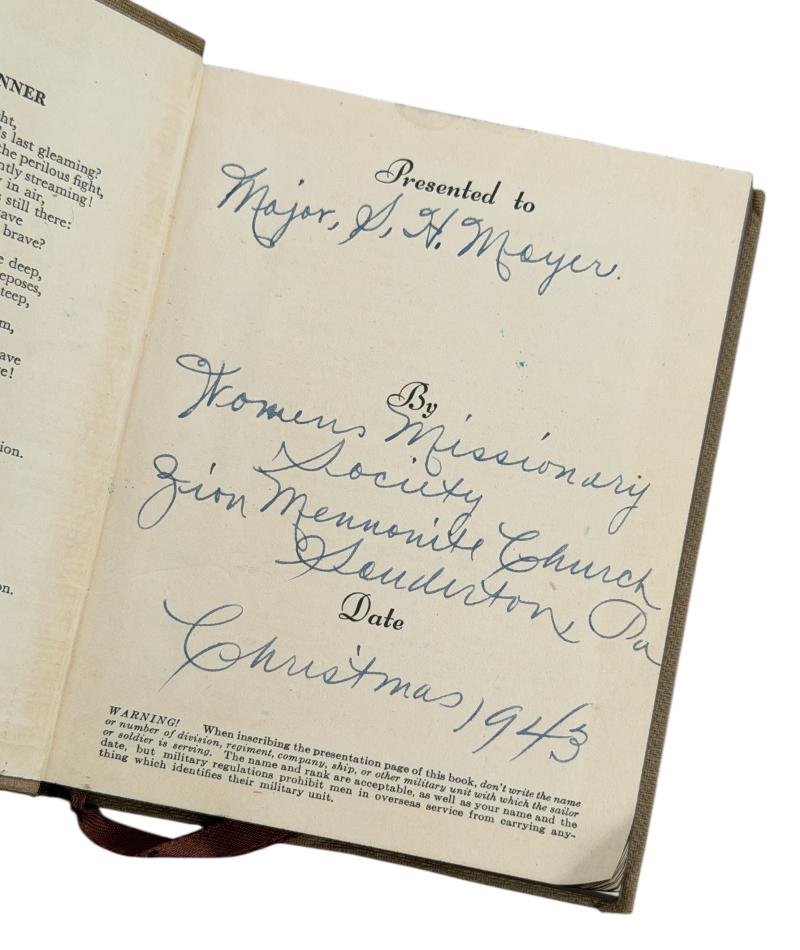 NNER
ht,
's last gleaming?
the perilous fight,
ntly streaming!
in air,
s still there:
ave
brave?
e deep,
eposes,
teep,
m,
ave
e!
ion.
n.
Presented to
Major, S. H. Moyer.
By
Womens Missionary
Society
Zion Mennonite Church
Souderton, Pa
Date
Christmas 1943
WARNING! When inscribing the presentation page of this book, don't write the name
or number of division, regiment, company, ship, or other military unit with which the sailor
or soldier is serving. The name and rank are acceptable, as well as your name and the
date, but military regulations prohibit men in overseas service from carrying any-
thing which identifies their military unit.